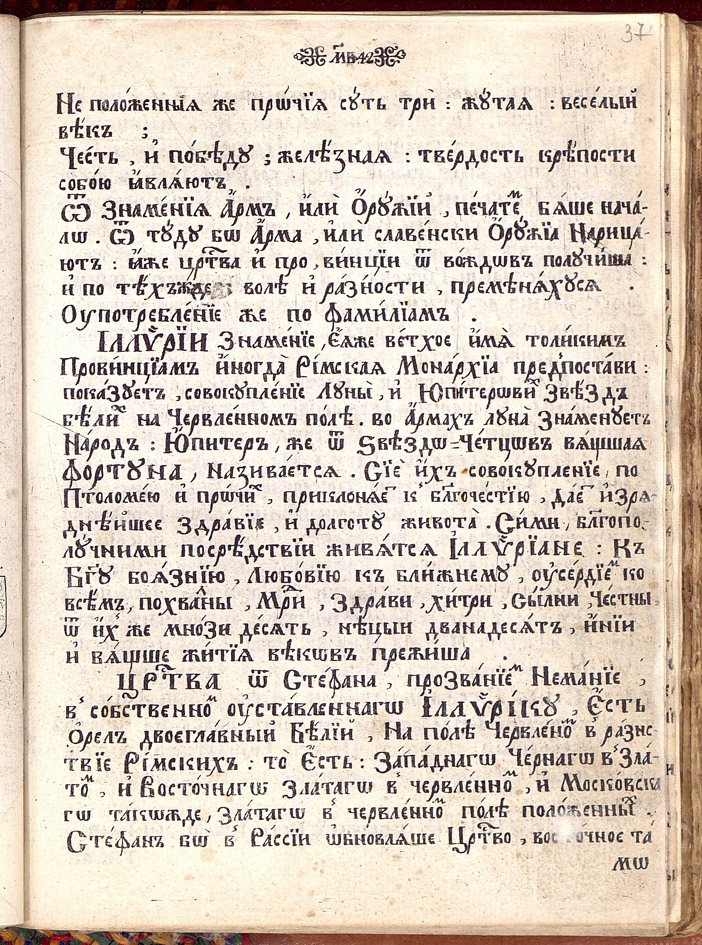 37
м҃в 42
Не положе́нныѧ же прѡ́чїѧ сꙋ́ть трѝ : жꙋ́тая : весе́лый
вѣ́къ ;
Че́сть , и҆ побѣ́дꙋ ; желѣ́зная : тве́рдость крѣ́пости
собо́ю ꙗ҆влѧ́ютъ .
Ѿ Знаме́нїѧ А҆́рмъ , и҆лѝ Ѻ҆рꙋ́жїй , печа́теⷨ бѧ́ше нача́-
лѡ . Ѿ тꙋ́дꙋ бѡ А҆́рма , и҆лѝ славе́нски Ѻ҆рꙋ́жїа Нарица́-
ютъ : ꙗ҆́же црⷭ҇тва и҆ про,ви́нцїи ѿ во́ждѡвъ полꙋчи́ша :
и҆ по тѣ́хъжде волѣ и҆ ра́зности , премѣнѧ́хꙋсѧ .
Оупотребле́нїе же по фами́лїамъ .
І҆ЛЛѴ́РЇИ Знаме́нїе , Є҆́же ве́тхое и҆́мѧ толи́кимъ
Прови́нцїамъ и҆ногда̀ Ри́мская Мона́рхїа предпоста́ви :
пока́зꙋетъ , совокꙋпле́нїе Лꙋны̀ , и҆ Юпи́терѡвиⷯ Ѕвѣ́здъ
бѣ́лиⷯ на Червле́нномъ по́лѣ . во А҆́рмахъ лꙋна̀ Знаменꙋетъ
На́родъ : Ю҆пи́теръ , же ѿ Ѕвѣ́здѡ=Четцѡвъ вѧ́щшая
ФОРТꙊ́НА , Назива́етсѧ . Сїѐ и҆́хъ совокꙋпле́нїе , по
Птоломе́ю и҆ прѡ́чиⷯ , приклонѧ́еⷮ к̾ бл҃гоче́стїю , да́еⷮ и҆зрѧ-
днѣ́йшее здра́вїе , и҆ долготꙋ̀ живота̀ . Си́ми , бл҃гопо-
лꙋ́чними посрѣ́дствїи живѧ́тсѧ І҆ллѵ́рїане : Къ
Бг҃ꙋ боѧ́знїю , Любо́вїю къ бли́жнемꙋ , оу҆се́рдїеⷨ ко
всѣ́мъ , похва́лны , Мⷣри , Здра́ви , хи́три , сы́лни , Че́стны
ѿ и҆́хⷤ же мно́зи де́сѧть , нѣ́цыи двана́десѧтъ , и҆ні́и
и҆ вѧ́щше жи́тїѧ вѣ́кѡвъ прежи́ша .
ЦРⷭ҇ТВА ѿ Сте́фана , прозва́нїеⷨ Нема́нїе ,
в̾ со́бственноⷨ оу҆ста́вленнагѡ І҆ЛЛѴ́РІ́КꙊ , Є҆́сть
Ѻ҆ре́лъ двоегла́вный Бѣ́лїй , На по́лѣ Червле́ноⷨ в̾ ра́знс
твїе Ри́мскихъ : то̀ Є҆́сть : За́паднагѡ Че́рнагѡ в̾ Зла-
тоⷨ , и҆ Восто́чнагѡ Зла́тагѡ в̾ червле́нноⷨ , и҆ Моско́вска
гѡ та́кѡжде , зла́тагѡ в̾ червле́нноⷨ по́лѣ поло́женныⷯ .
Сте́фанъ бѡ в̾ Ра́ссїи ѡ҆бновлѧ́ше Црⷭ҇тво , восто́чное та
мѡ